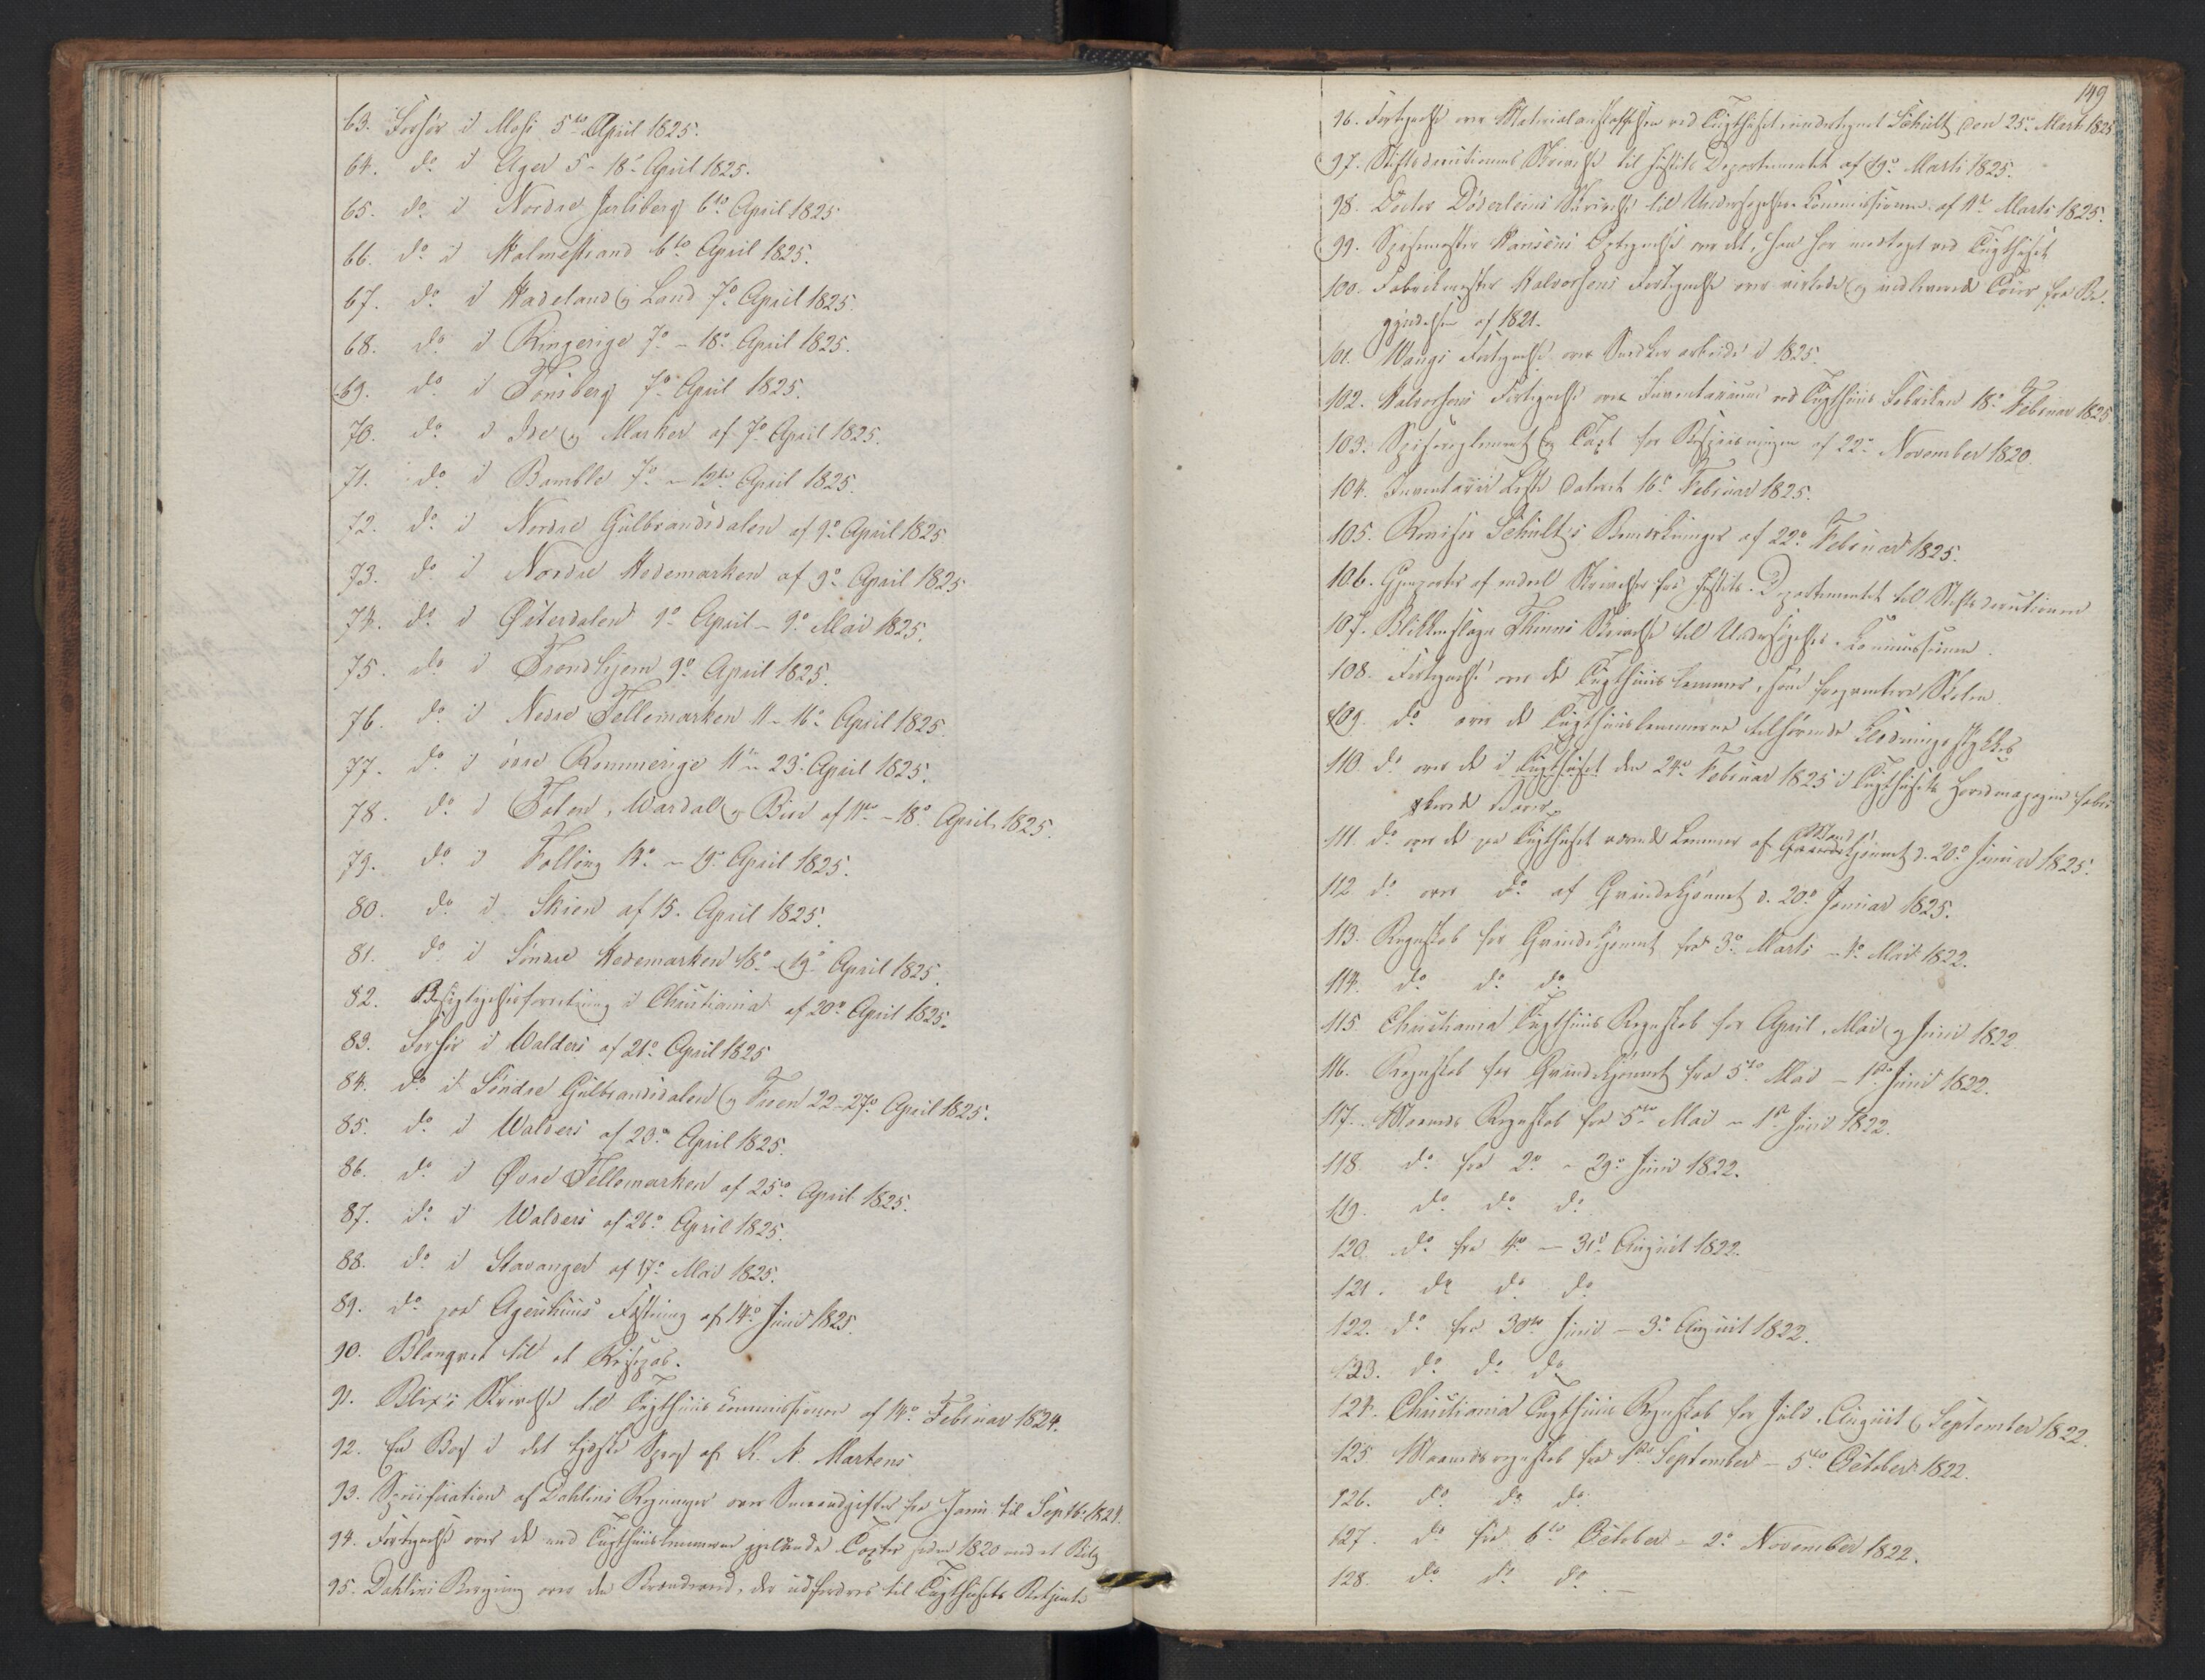 63. Forhør i Moss 5te April 1825.
64. do i Ager 5 - 18 April 1825.
65. do i Nordre Jarlsberg 6te April 1825
66. do i Holmestrand 6te April 1825.
67. do i Hadeland og Land 7o April 1825
68. do i Ringerige 7o - 18o April 1825.
69. do i Tønsberg 7o April 1825.
70. do i Ide og Marker af 7o April 1825.
71. do i Bamble 7o - 12te April 1825.
72. do i Nordre Gulbrandsdalen af 9o April 1825
73. do i Nordre Hedemarken af 9o April 1825
74. do i Østerdalen 9o April - 9o Mai 1825.
75. do i Trondhjem 9o April 1825.
76. do i Nedre Tellemarken 11 - 16o April 1825.
77. do i øvre Rommerige 11te - 23o April 1825.
78. do i Toten, Wardal og Birid af 11te - 18o April 1825.
79. do i Folloug 13o - 19o April 1825.
80. do i Skien af 15. April 1825.
81. do i Søndre Hedemarken 18o - 19o April 1825.
82. Besigtigelsesforretning i Christiania af 20o April 1825.
83. Forhør i Walders af 21o April 1825
84. do i Søndre Gulbrandsdalen og Froen 22-27o April 1825.
85. do i Walders af 23o April 1825.
86. do i Øvre Tellemarken af 25o April 1825.
87. do i Walders af 26o April 1825.
88. do i Stavanger af 17o Mai 1825.
89. do paa Agershuus Fæstning af 14o Juni 1825.
90. Blanqvet til et Reisepas.
91. Blix's Skrivelse til Tugthuus Commissionen af 14o Februar 1824.
92. En Bog i det tydske Sprog af K. A. Martens
93. Specification af Dahlins Regninger over Smaaudgifter fra Janu til Septb. 1824.
94. Fortegnelse over de ved Tugthuuslemmerne gjeldende Taxter siden 1820 med et Bilag
95. Dahlins Regning over den Brændeved, der udfordres til Tugthusets Betjente
149
96. Fortegnelse over Materialanskaffelsen ved Tugthuset undertegnet Schult den 25o Marts 1825
97. Stiftsdirectionens Skrivelse til Justits Departementet af 19o Marts 1825.
98. Doctor Døderleins Skrivelse til Undersøgelses Commissionen af 11te Marts 1825.
99. Spisemester Hansens Optegnelse over det, han har modtaget ved Tugthuset
100. Fabrikmester Halvorsens Fortegnelse over virkede og indleverede Tøier fra Be-
gyndelsen af 1821.
101. Wangs Fortegnelse over Snedker arbeide i 1825.
102. Halvorsens Fortegnelse over Inventarium ved Tugthuus Fabriken 18o Februar 1825
103. Spisereglement og Taxt for Bespiisningen af 22o November 1820.
104. Inventarii Liste dateret 16o Februar 1825.
105. Revisor Schult's Bemærkninger af 22o Februar 1825.
106. Gjenparter af endeel Skrivelser fra Justits-Departementet til Stiftsdirectionen
107. Blikkenslager Thunes Skrivelse til Undersøgelses-Commissionen.
108. Fortegnelse over de Tugthuus lemmer, som frequentere Skolen.
109. do over de Tugthuuslemmerne tilhørende Klædningsstykker
110. do over de i Tugthuset den 24o Februar 1825 i Tugthusets Hovedmagazin
Varer.
111. do over de paa Tugthuset værende Lemmer af Mandkjønnet d. 20o Januar 1825.
112 do over do af Qvindekjønnet d. 20o Januar 1825.
113. Regnskab for Qvindekjønnet fra 3o Marts - 4o Mai 1822.
114. do do do
115. Christiania Tugthuus Regnskab for April, Mai og Juni 1822
116. Regnskab for Qvindekjønnet fra 5te Mai - 1ste Juni 1822.
117. Maaneds Regnskab fra 5te Mai - 1ste Juni 1822.
118. do fra 2o - 29o Juni 1822.
119. do do do
120. do fra 4o - 31te August 1822.
121. do do do
122. do fra 30te Juni - 3o August 1822.
123. do do do
124. Christiania Tugthuus Regnskab for Juli, August og September 1822.
125. Maanedsregnskab fra 1ste September - 5te October 1822.
126. do do do
127. do fra 6te October - 2o November 1822.
128. do do do